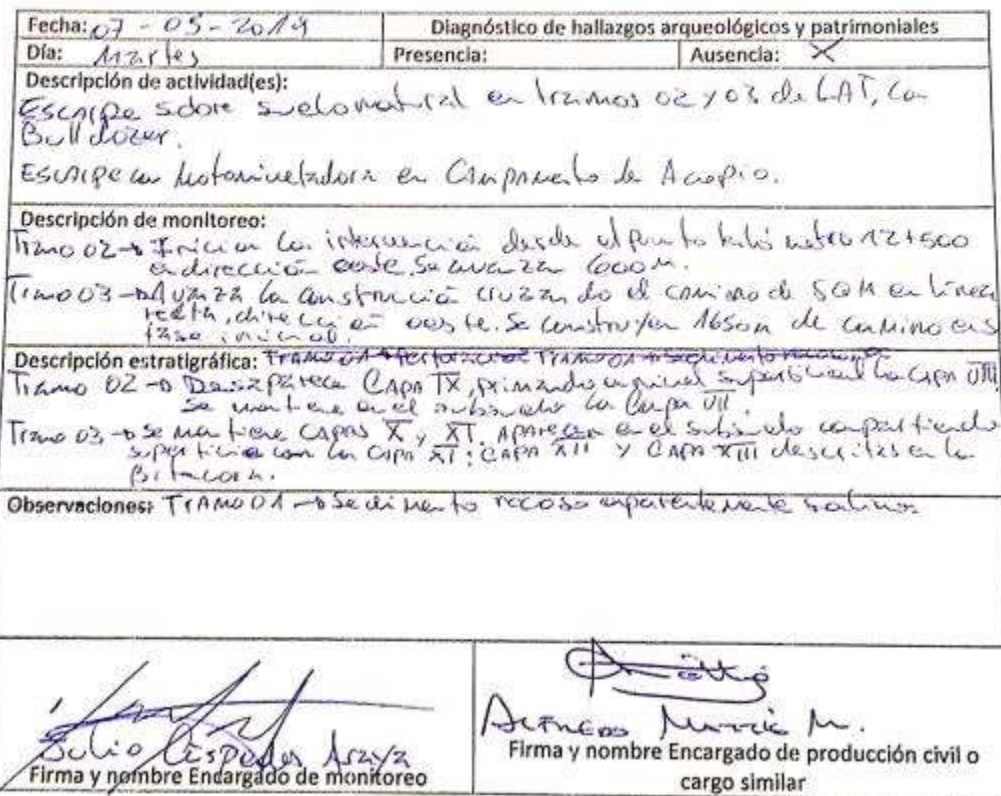 Fecha: 07-05-2019 Diagnóstico de hallazgos arqueológicos y patrimoniales
Día: Martes Presencia: Ausencia: X
Descripción de actividad(es):
Escarpe sobre suelo natural en tramos 02 y 03 de LAT, con
Bulldozer.
Escarpe con Motoniveladora en Campamento de Acopio.
Descripción de monitoreo:
Tramo 02 → Inician la intervención desde el punto kilómetro 12+500
en dirección oeste. Se avanza 600 m.
Tramo 03 → Avanza la construcción cruzando el camino de SQM en línea
recta, dirección oeste. Se construyen 1650m de camino en su
fase inicial.
Descripción estratigráfica: Tramo 01 → Tramo 01 → Sedimento
Tramo 02 → Desaparece Capa IX, primando a nivel superficial la capa VIII,
se mantiene en el subsuelo la Capa VII.
Tramo 03 → Se mantiene capas X y XI. Aparecen en el subsuelo compartiendo
superficie con la capa XI: capa XII y capa XIII descritas en la
Bitacora.
Observaciones: Tramo 01 → Sedimento rocoso aparentemente salino
Julio Céspedes Araya
Firma y nombre Encargado de monitoreo
Alfredo M.
Firma y nombre Encargado de producción civil o
cargo similar